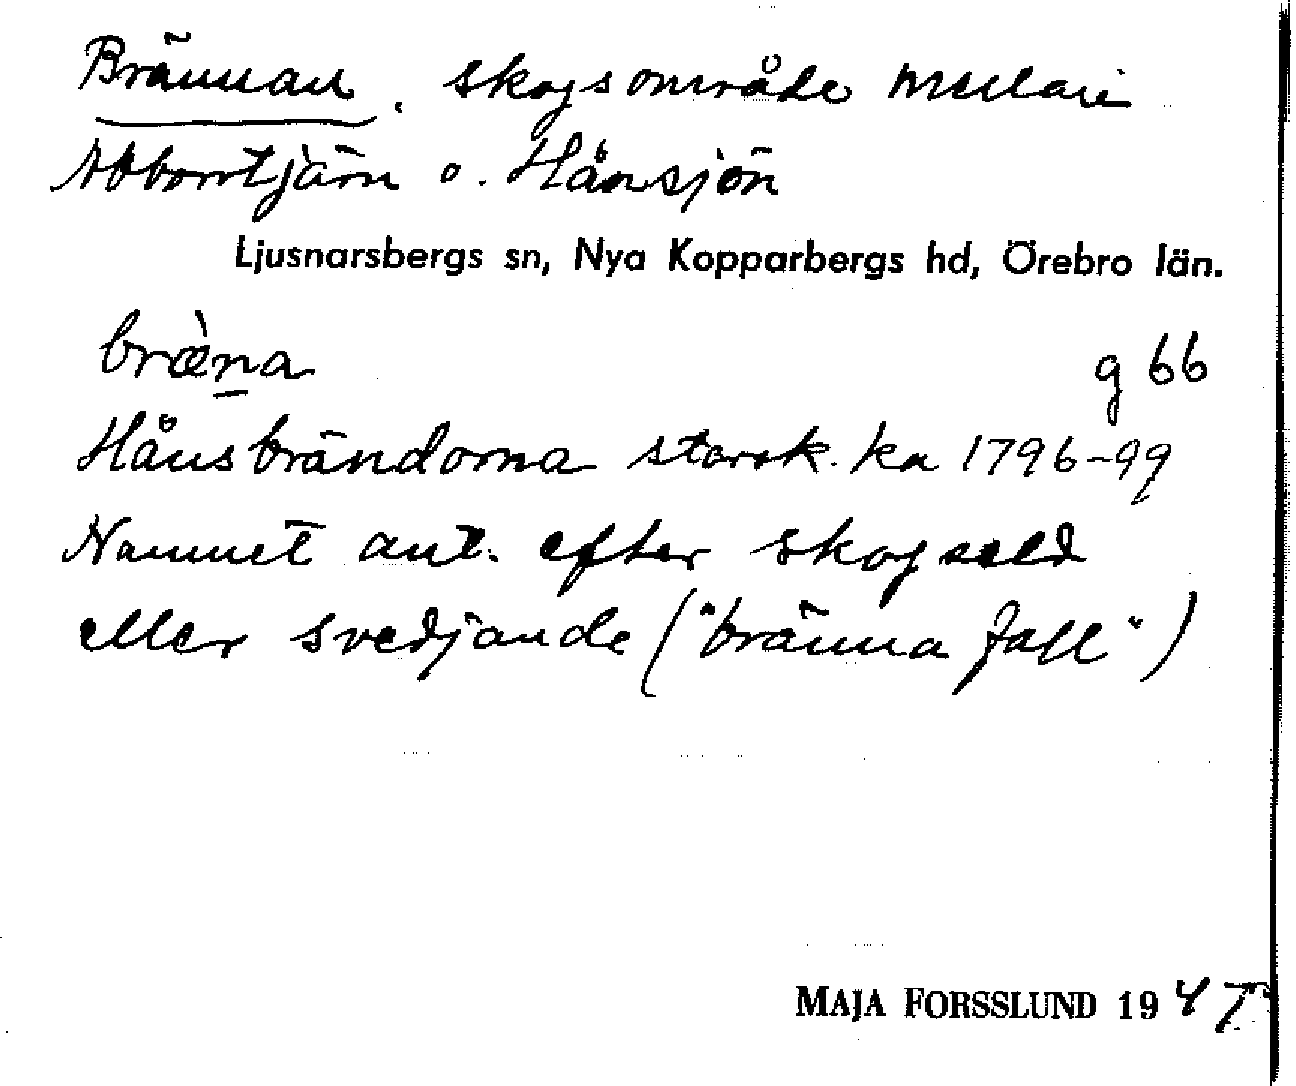 Brännan, skogsområde mellan
Abborrtjärn o. Hånsjön
Ljusnarsbergs sn, Nya Kopparbergs hd, Örebro län.
bræ̀na g 66
Hånsbrändorna storsk. ka 1796-99
Namnet ant. efter skogseld
eller svedjande ("bränna fall")
MAJA FORSSLUND 1947